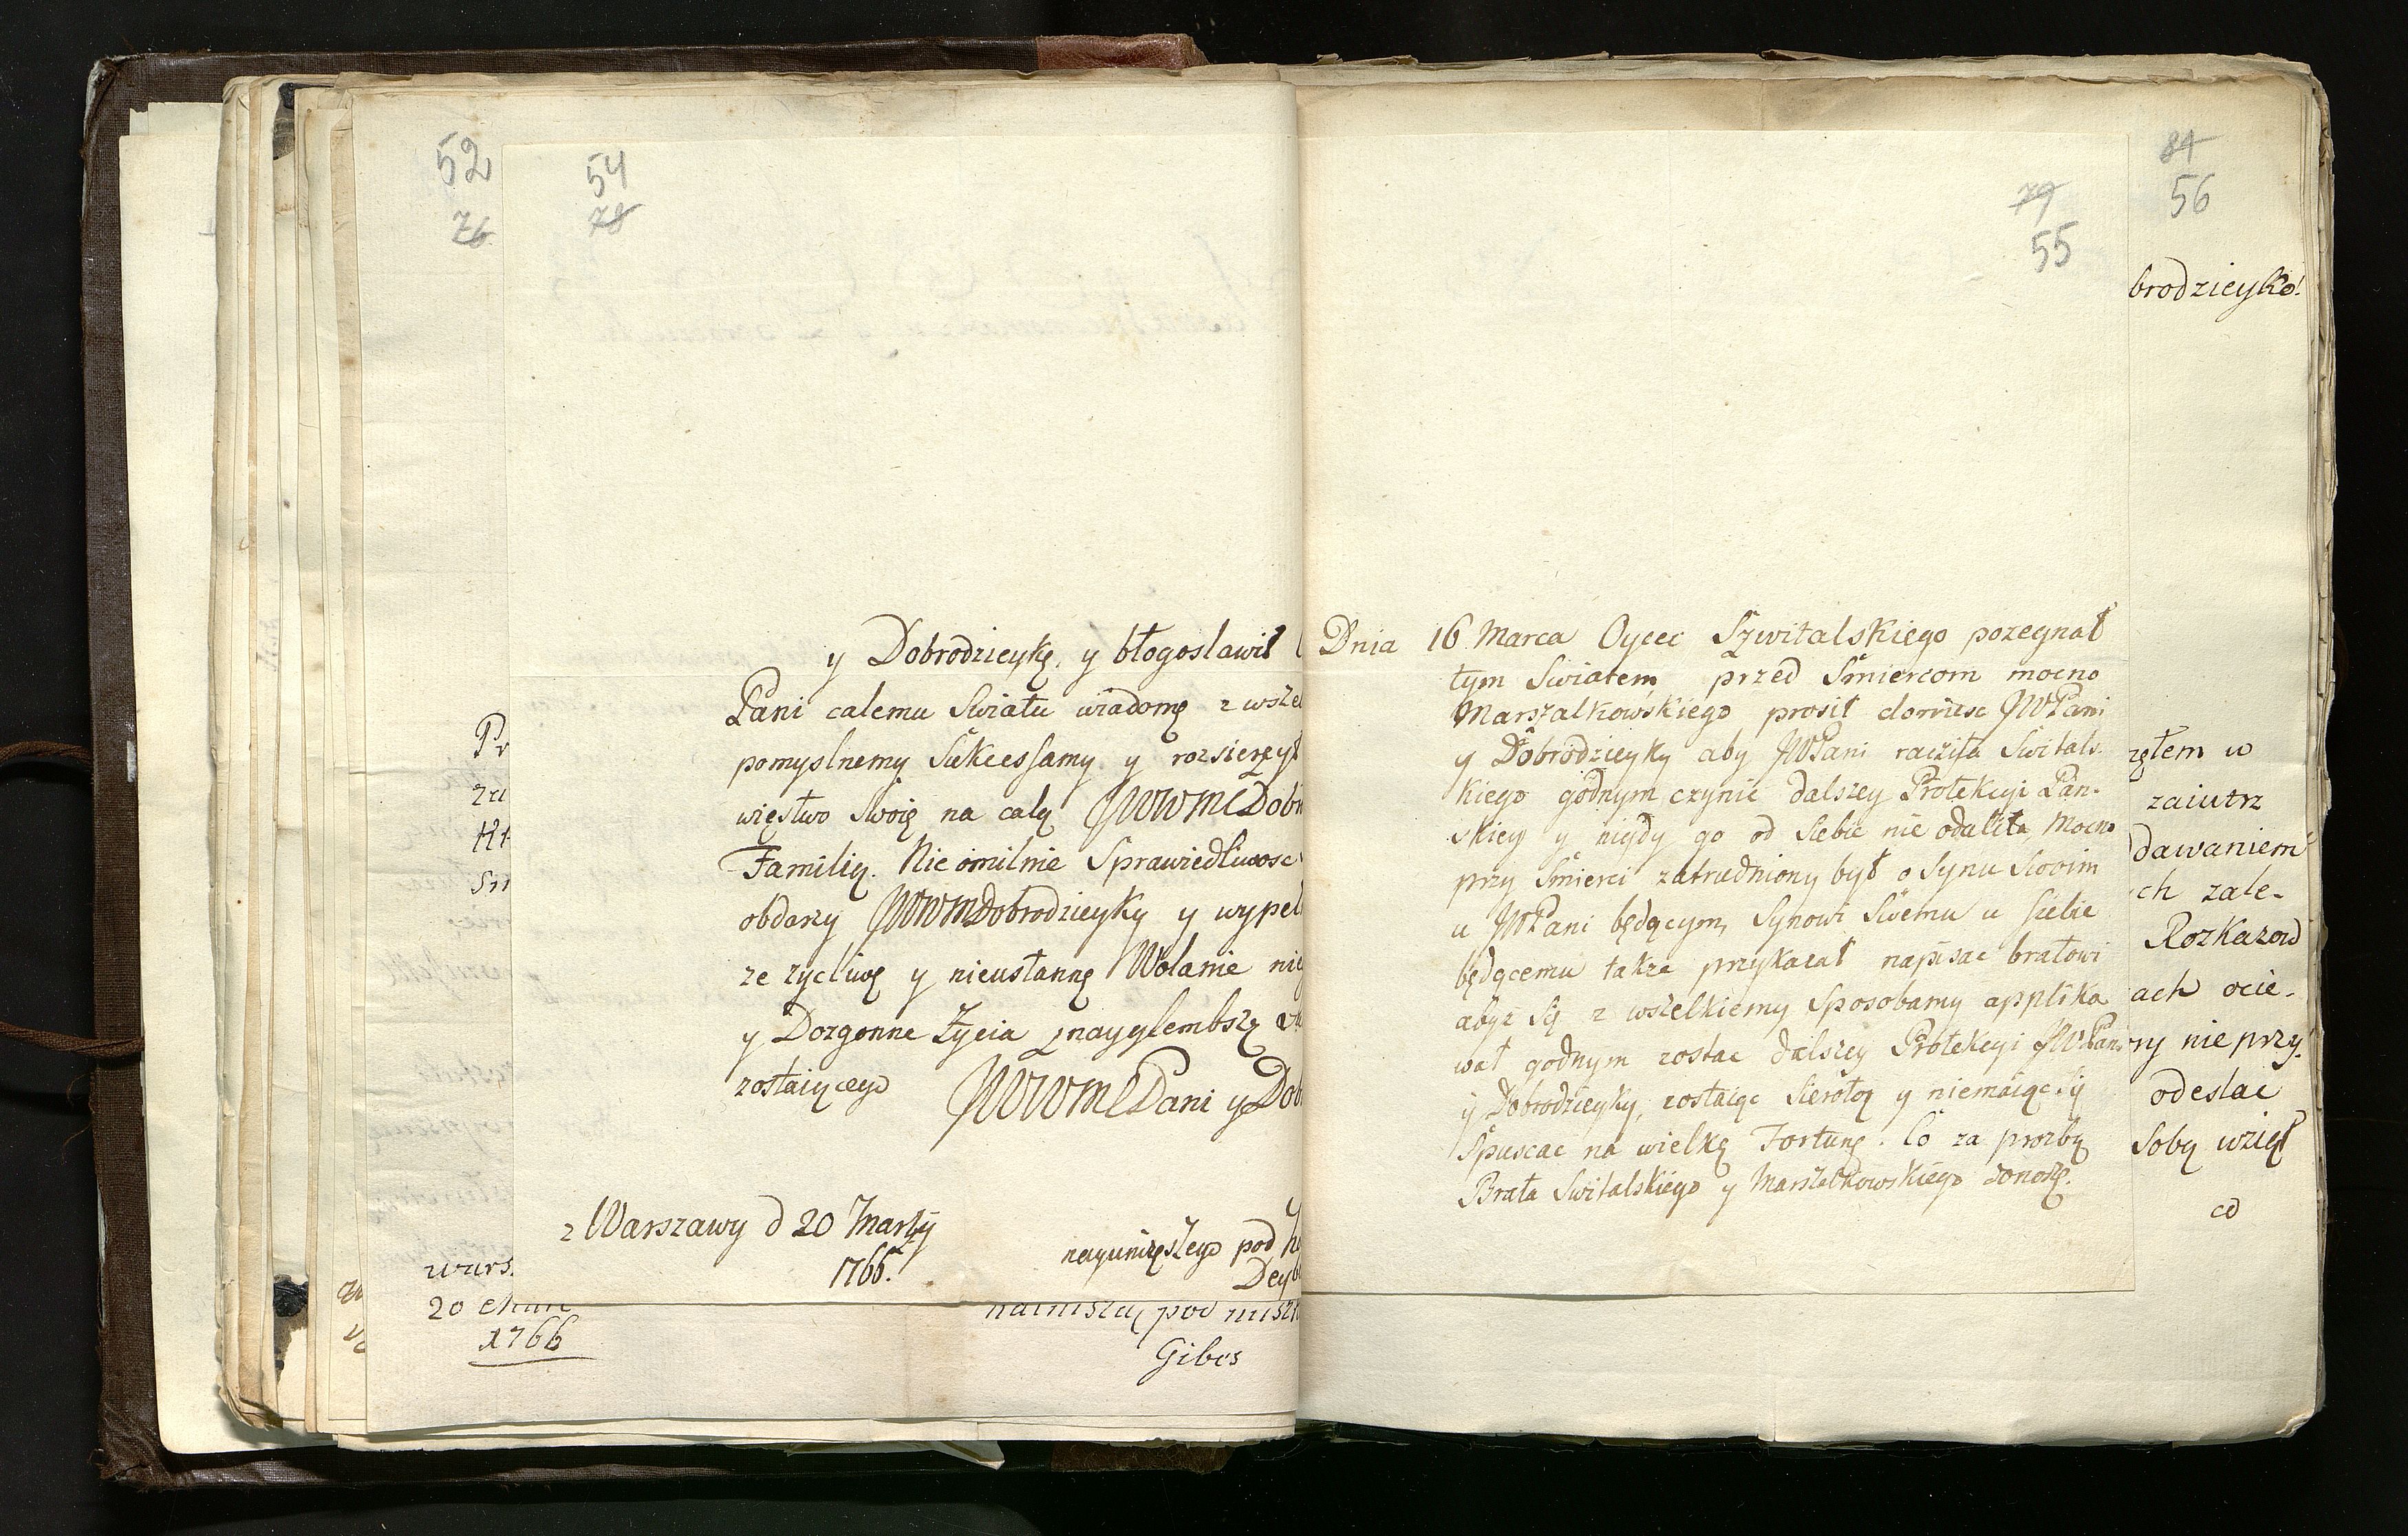 52
76
54
78
y Dobrodzieykę, y błogosławił
Pani calemu Swiatu wiadomę z wszel
pomyslnemy Sukcessamy y rozsierzył
więstwo Swoię na calę JWWMCDobr
Familię. Nie omilnie Sprawiedliwosc
obdarzy JWWMDobrodzieyky y wypel
ze zycliwę y nieustannę Wolanie nig
y Dozgonne Zycia z nayglembszę
zostaięcego JWWMCPani y Dob
z Warszawy d 20 Martij
1766.
nayunięszego pod
Dey
Pr
zu
sm
wars.
20
1766
naimszey pod
Gibes
79
55
Dnia 16 Marca Oycec Szwitalskiego pozegnał
tym Swiatem, przed Smiercom mocno
Marszalkowskiego prosił doniesc JWPani
y Dobrodzieyky aby JWPani raczyła Switals-
kiego godnym czynic dalszey Protekcyi Pan-
skiey y nigdy go od Siebie nie odaliła, Mocno
przy Smierci zatrudniony był o Synu Swoim
u JWPani będęcym, Synowi Swemu u Siebie
będęcemu takze przykazał napisac bratowi
abyz Się z wszelkiemy Sposobamy applika
wał godnym zostac dalszey Protekcyi JWPani
y Dobrodzieyky, zostaięc Sierotę y niemaięc Się
Spuscac na wielkę Fortunę. Co za prozbę
Brata Switalskiego y Marszalkowskiego donoszę.
84
56
brodzieyko!
ząłem w
zaiutrz
dawaniem
ch zale-
Rozkazow
ach ocie-
ny nie przy-
odeslac
soby wzięł
co